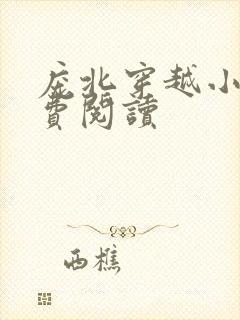 庶北穿越小
費閱讀
西樵